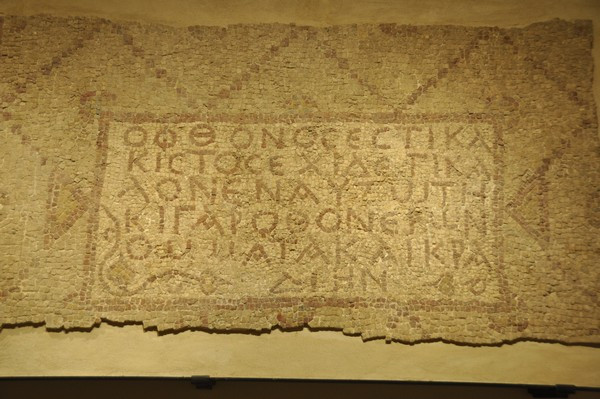 ΟΦΘΟΝΟϹΕϹΤΙΚΑ
ΚΙϹΤΟϹΕΧΙΔΕΤΙΚΑ
ΛΟΝΕΝΑΥΤωΤΗ
ΚΙΓΑΡΦΘΟΝΕΡωΝ
ΟΜΜΑΤΑΚΑΙΚΡΑ
ΔΙΗΝ